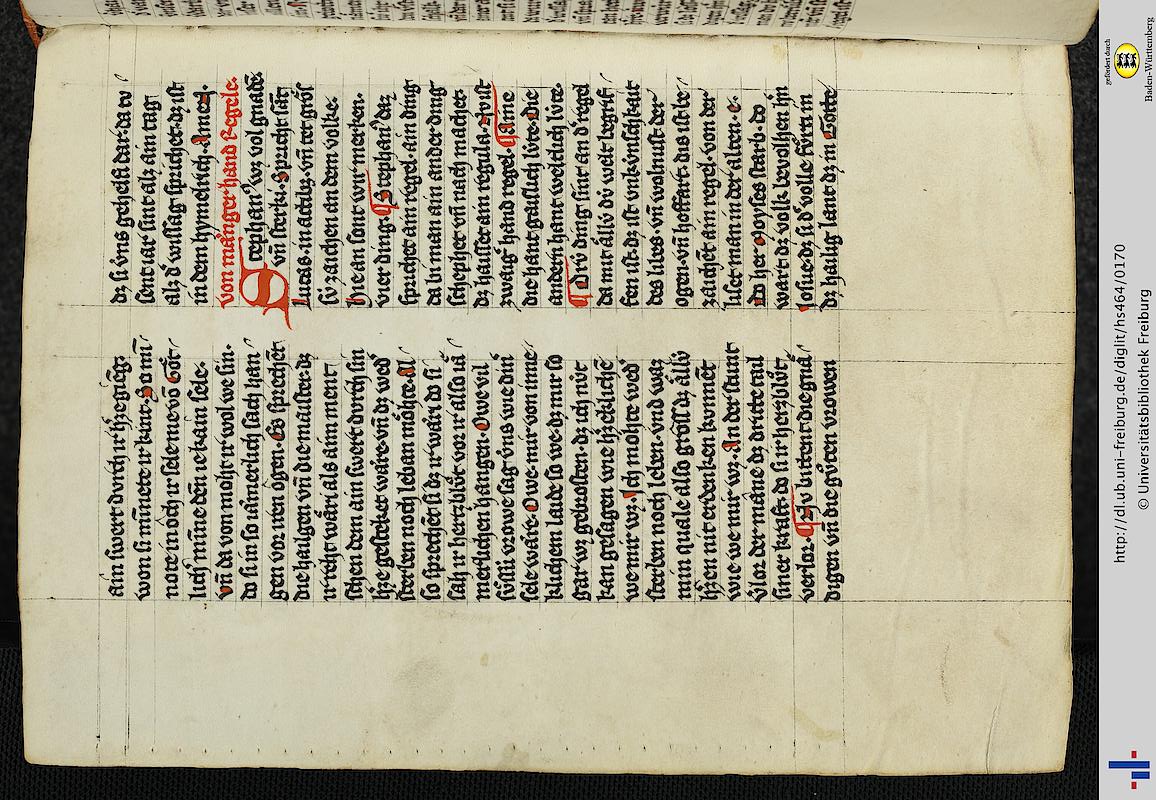 ain swert durch ir hˀze gieng
won si minnete ir kint. So mī
note in och ir sele me vō Got
lich minne dēn ie kain sele.
vn̄ da von moht ir wol we sin.
do si in so iāmerlich sach han
gen vor iren ogen. Es sprechēt
die hailgen vn̄ die maister. dz
ir reht wār als aim ment
schen dem ain swert durch sin
hˀze gestecket wāre. vn̄ dz wedˀ
sterben noch leben mȯhte. Al
so sprechēt si dz ir wār do si
sah ir hertzblůt vor ir also iā
merlichen hangen. Owe vil
sv̇ssv̇ vrowe sag v̇ns wie din
sele wāre. Owe mir von inne
klichem laide so we. dz mir so
gar we gebrosten. dz ich niht
kan gesagen wie hˀzeklichē
we mir wz. Ich mohte wedˀ
sterben noch leben. vnd waz
min quale also gross dz allv̇
hˀzen nit erdenken konnēt
wie we mir wz. An der stunt
v̇lor der māne dz dritte tail
siner kraft. do si ir hertzblůt
verlor. Nv bittent die gnā
digen vn̄ die gůten vrowen
dz si v̇ns gehelf dar. da tv
sent iar sint alz ain tag
alz dˀ wissag sprichet. dz ist
in dem hymelrich. Amen.
Von mangerhand Regele.
Stephanˀ wz vol gnadē
vn̄ sterki. Spricht sāt
Lucas in actibz. vn̄ tet gross
sv̇ zaichen an dem volke.
Hie an sont wir merken.
vier ding. S. stephanˀ daz
sprichet ain regel. ain ding
da bi man ain ander ding
schephet vn̄ nach machet.
dz haisset ain regula. Nv ist
zwaigˀ hand regel. Aine
die hant gaislich lv̇te. Die
andern hant weltlich lv̇te.
Driv̇ ding sint an dˀ regel
da mit allv̇ dv̇ welt begrif
fen ist. dz ist vnkv̇nschkait
des libes. vn̄ wolnust der
ogen. vn̄ hoffart. dis ist be
zaichēt ain regel. von der
liset man in der alten. e.
Do her Moyses starb. do
wart dz volk bevolhen hn
Iosue. dz si dˀ volle fu̇rti in
dz hailig lant. dz in Gotte
http://dl.ub.uni-freiburg.de/diglit/hs464/0170
© Universitätsbibliothek Freiburg
gefördert durch
Baden-Württemberg